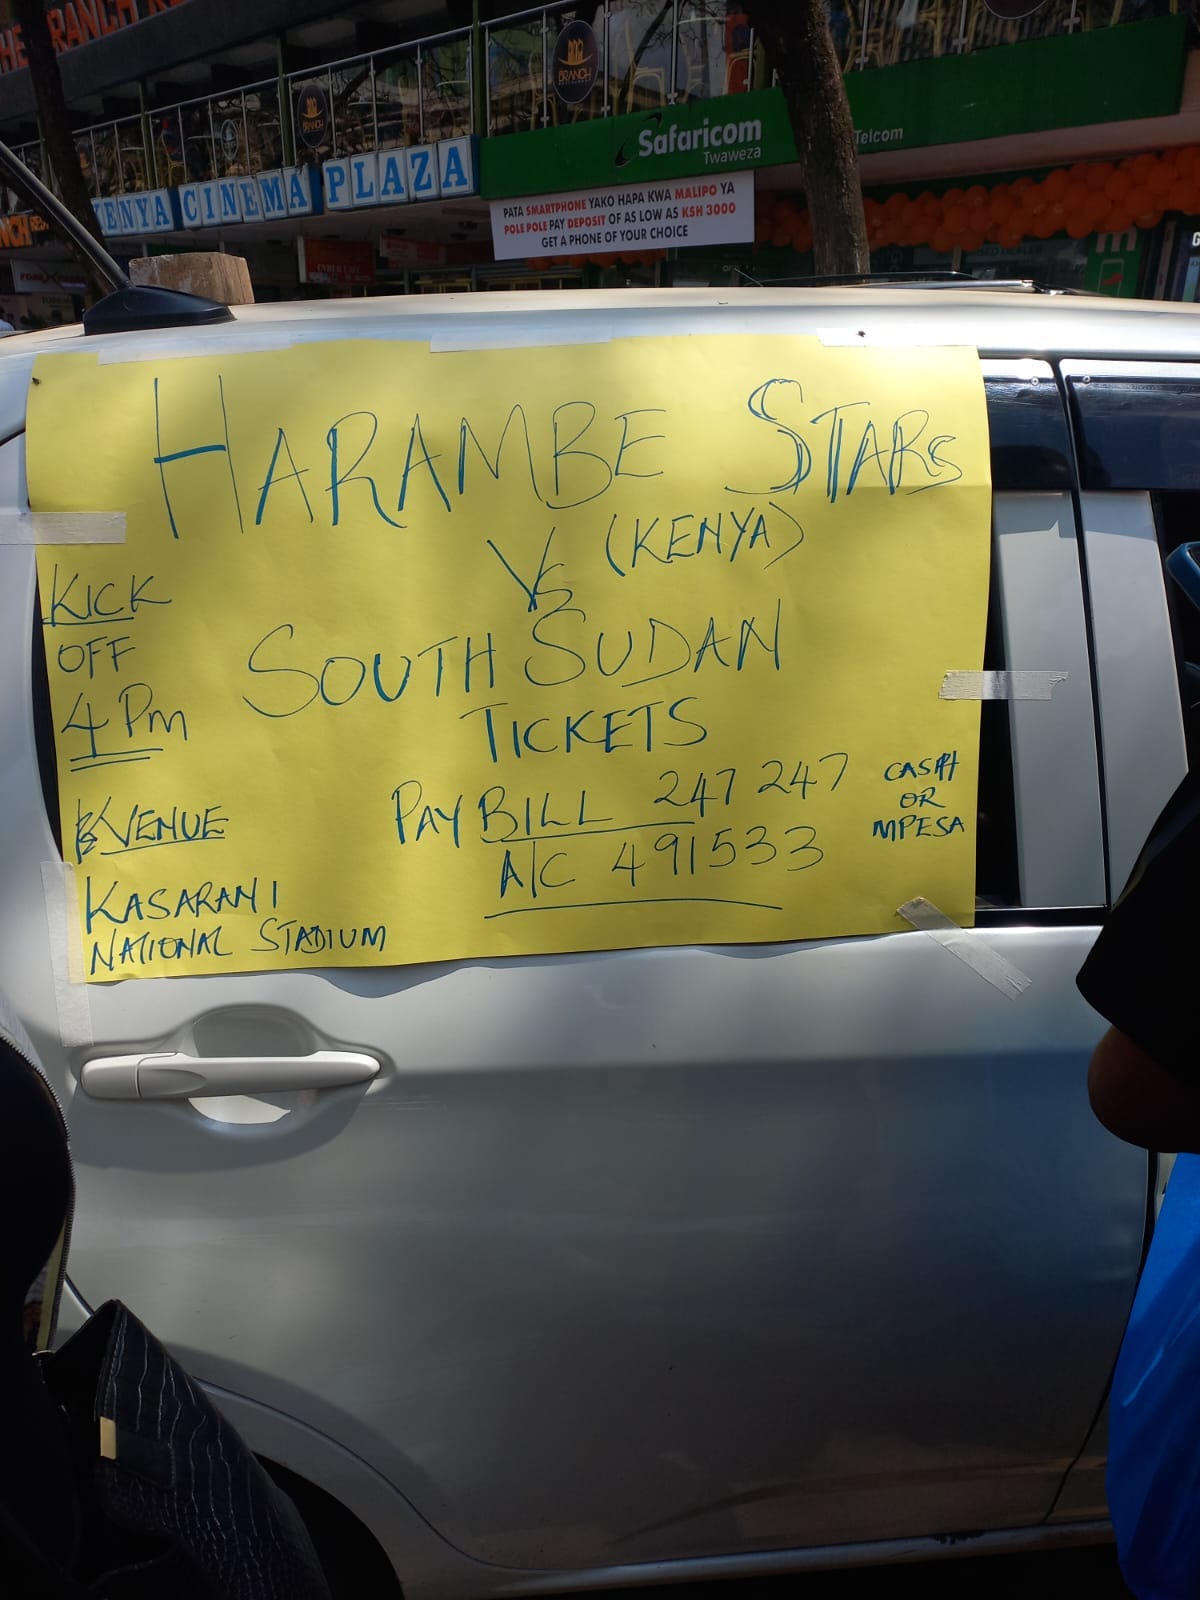 BRANCH
BRANCH
Safaricom
Twaweza
Telcom
KENYA CINEMA PLAZA
PATA SMARTPHONE YAKO HAPA KWA MALIPO YA
POLE POLE PAY DEPOSIT OF AS LOW AS KSH 3000
GET A PHONE OF YOUR CHOICE
CYBER CAFE
HARAMBE STARS
(KENYA)
Vs
SOUTH SUDAN
TICKETS
PAYBILL 247 247
A/C 491533
CASH
OR
MPESA
KICK
OFF
4 Pm
VENUE
KASARANI
NATIONAL STADIUM